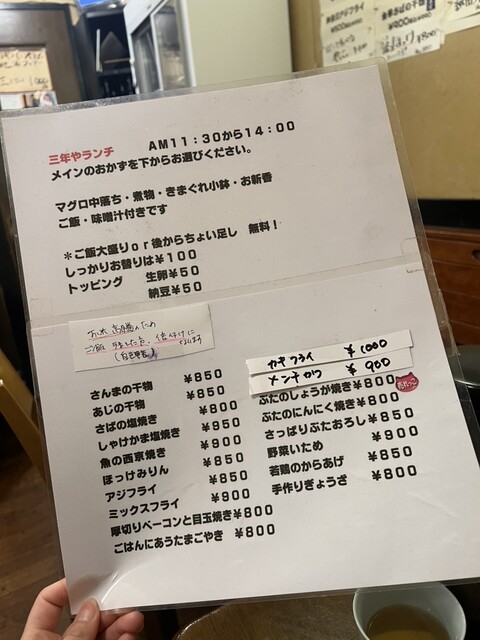 三年やランチ　AM11：30から14：00
メインのおかずを下からお選びください。
マグロ中落ち・煮物・きまぐれ小鉢・お新香
ご飯・味噌汁付きです
＊ご飯大盛りor後からちょい足し　無料！
しっかりお替りは￥100
トッピング　生卵￥50
納豆￥50
お米高騰のため
(自己申告)
カキフライ　￥1000
メンチカツ　￥900
さんまの干物　￥850
あじの干物　￥850
さばの塩焼き　￥800
しゃけかま塩焼き　￥950
魚の西京焼き　￥900
ほっけみりん　￥850
アジフライ　￥850
ミックスフライ　￥900
厚切りベーコンと目玉焼き￥800
ごはんにあうたまごやき　￥800
ぶたのしょうが焼き￥800
ぶたのにんにく焼き￥800
さっぱりぶたおろし　￥850
野菜いため　￥900
若鶏のからあげ　￥850
手作りぎょうざ　￥800